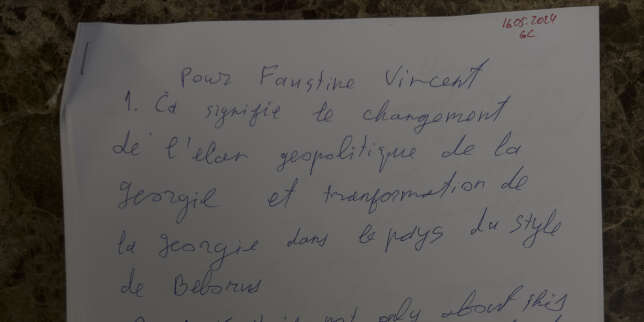 16.05.2024
GC
Pour Faustine Vincent
1. Ca signifie le changement
de l'elan geopolitique de la
georgie et tranformation de
la georgie dans le pays du style
de Belorus
not only about this